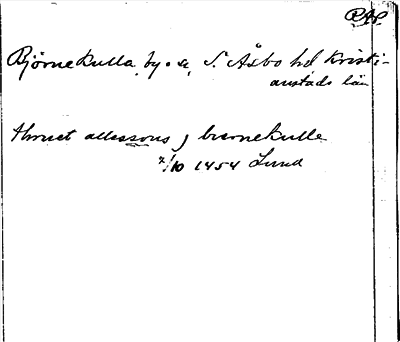 RAP.
Björnekulla, by o. s, S. Åsbo hd Kristi-
anstads län
thruet allessons j biernekulle
7/10 1454 Lund